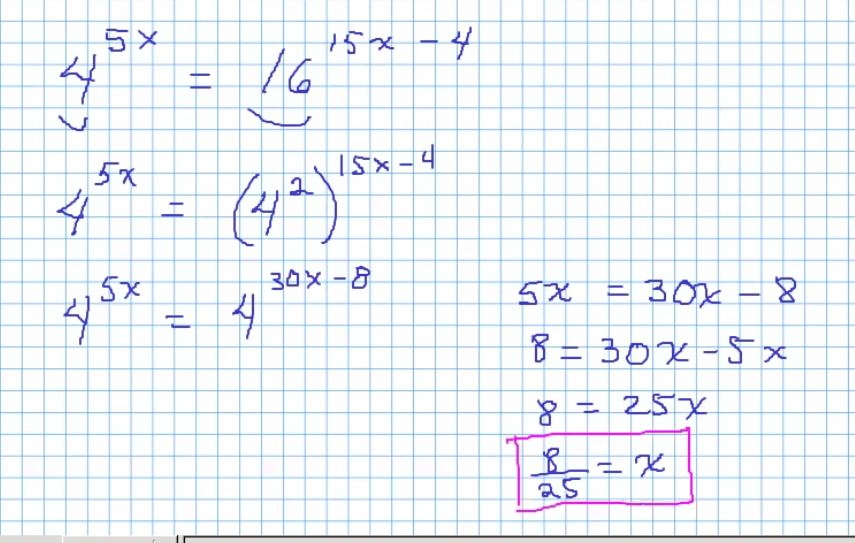 4^{5x} = 16^{15x - 4}
4^{5x} = (4^2)^{15x - 4}
4^{5x} = 4^{30x - 8}
5x = 30x - 8
8 = 30x - 5x
8 = 25x
8/25 = x